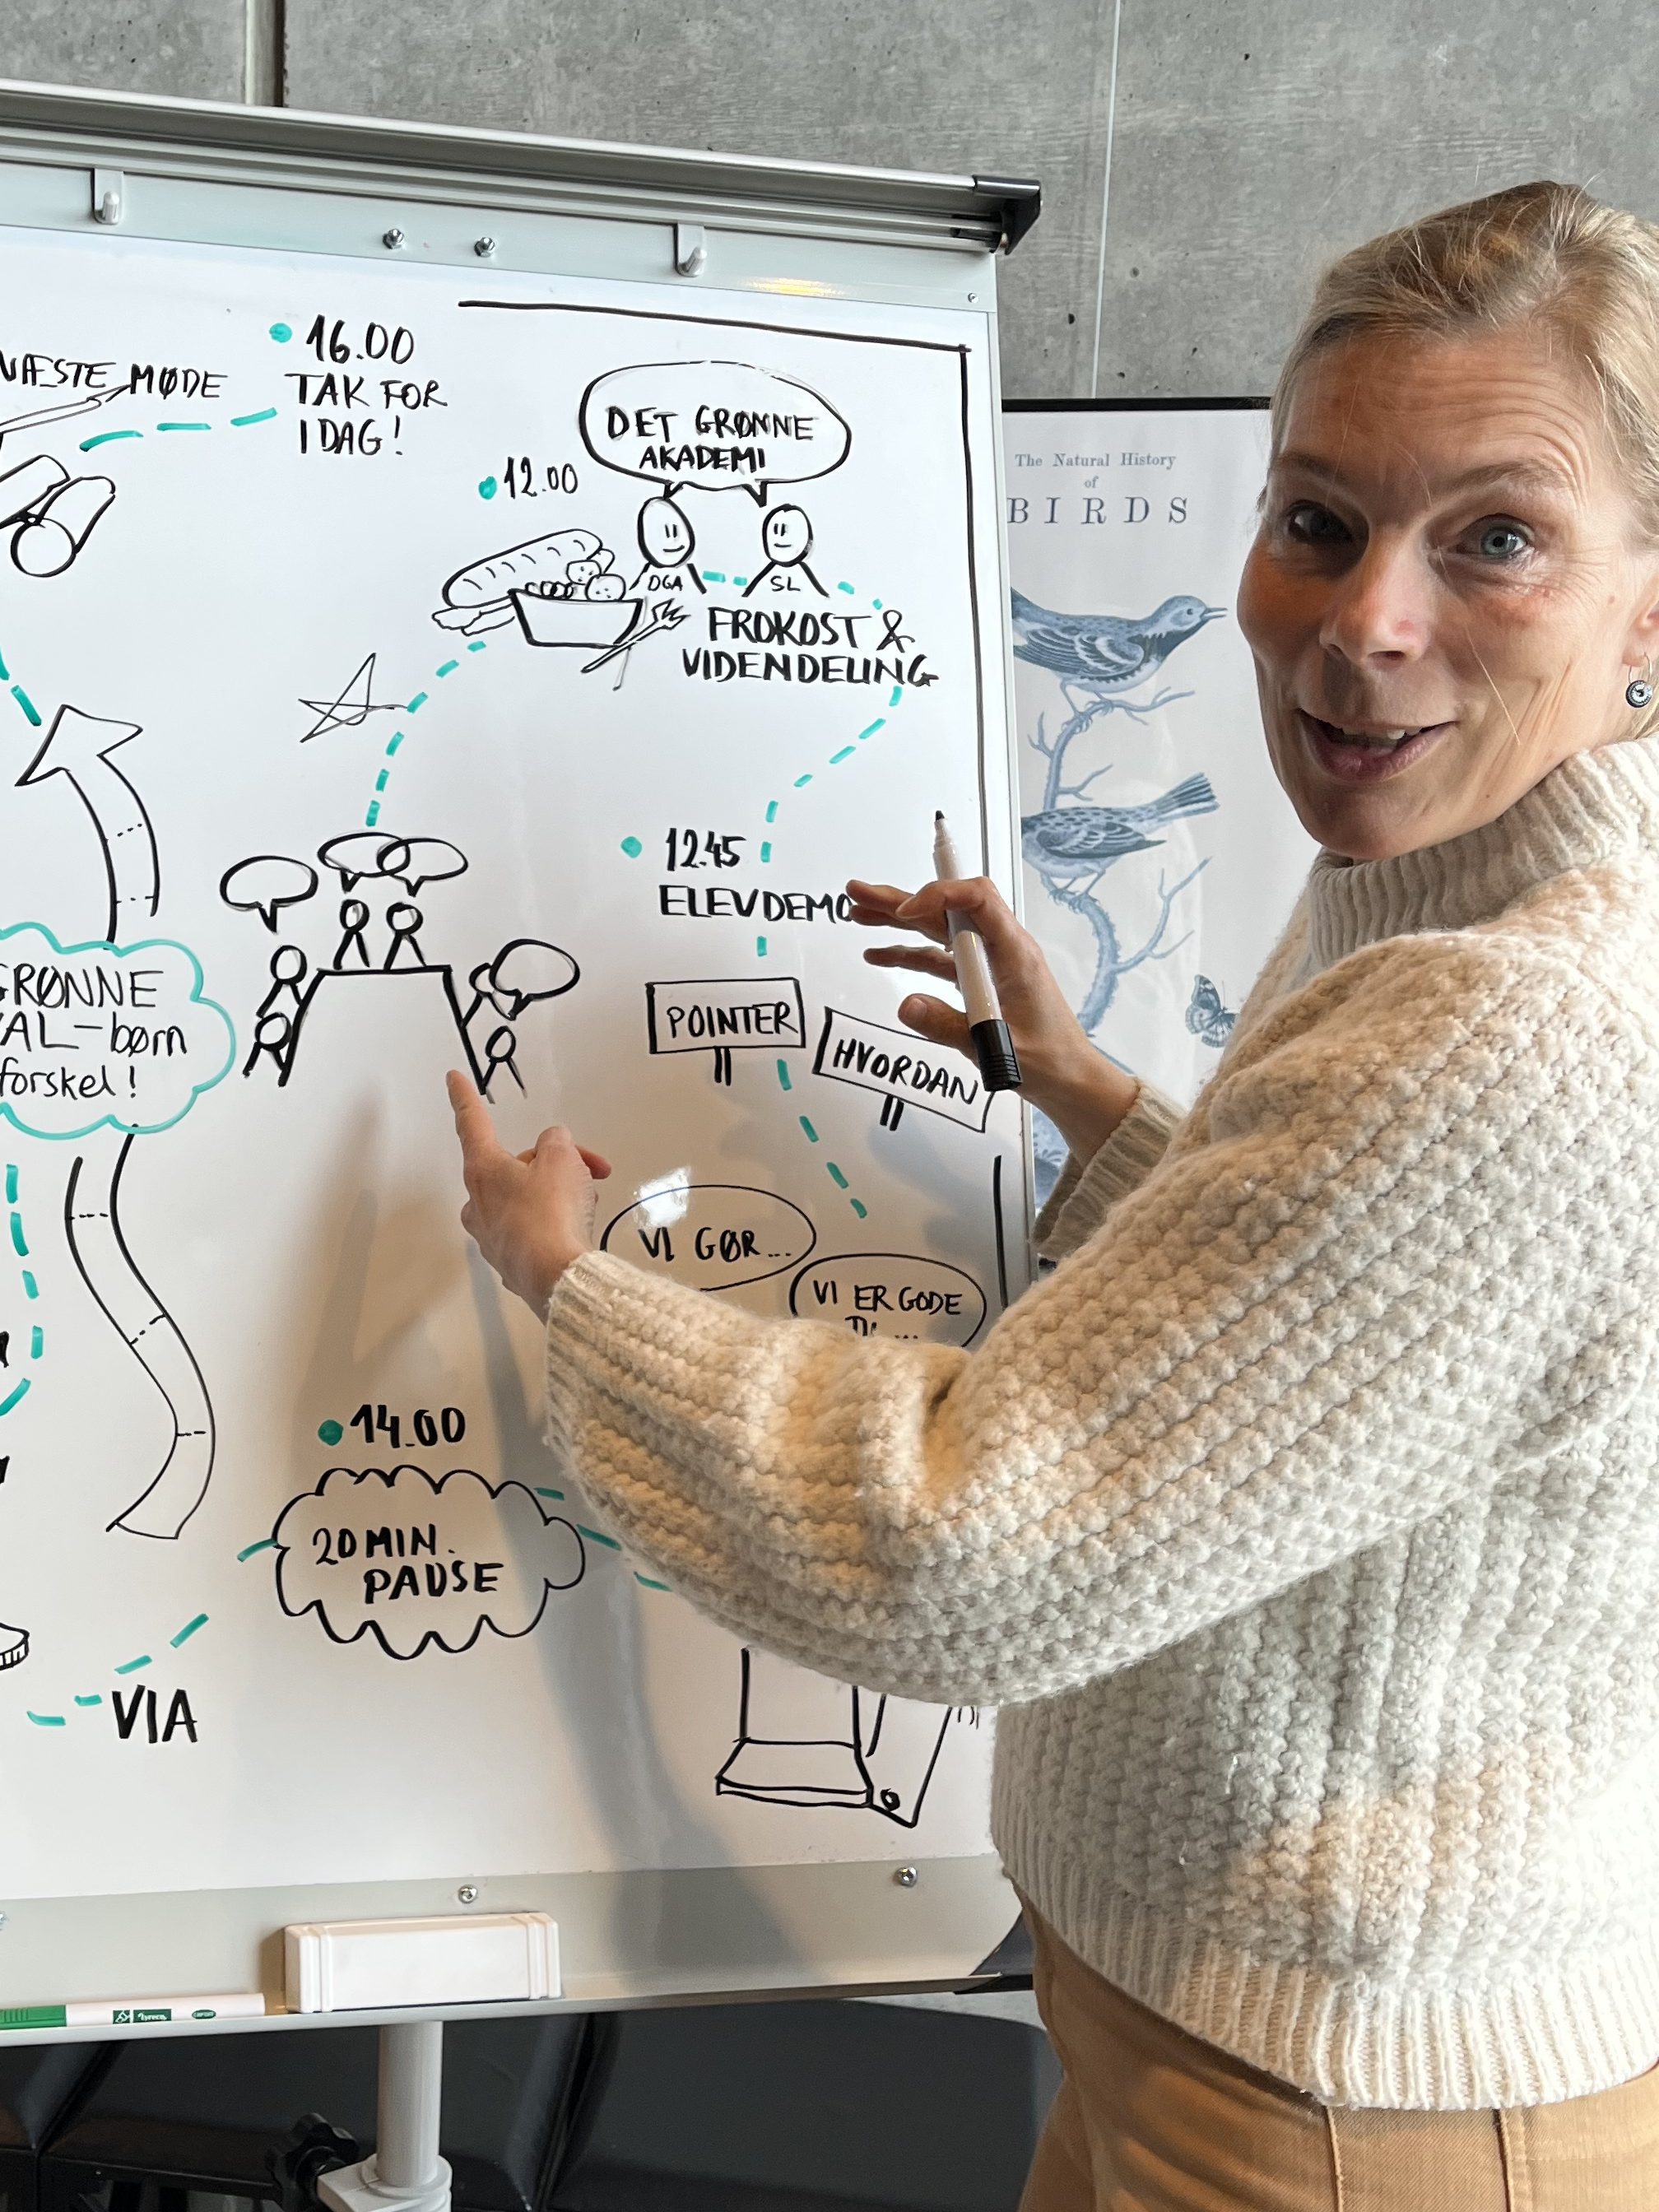 NÆSTE MØDE
16.00
TAK FOR
I DAG!
DET GRØNNE
AKADEMI
12.00
DGA
SL
FROKOST &
VIDENDELING
The Natural History
of
BIRDS
12.45
ELEVDEMO
POINTER
HVORDAN
GRØNNE
AL-børn
forskel!
VI GØR...
VI ER GODE
14.00
20 MIN.
PAUSE
VIA